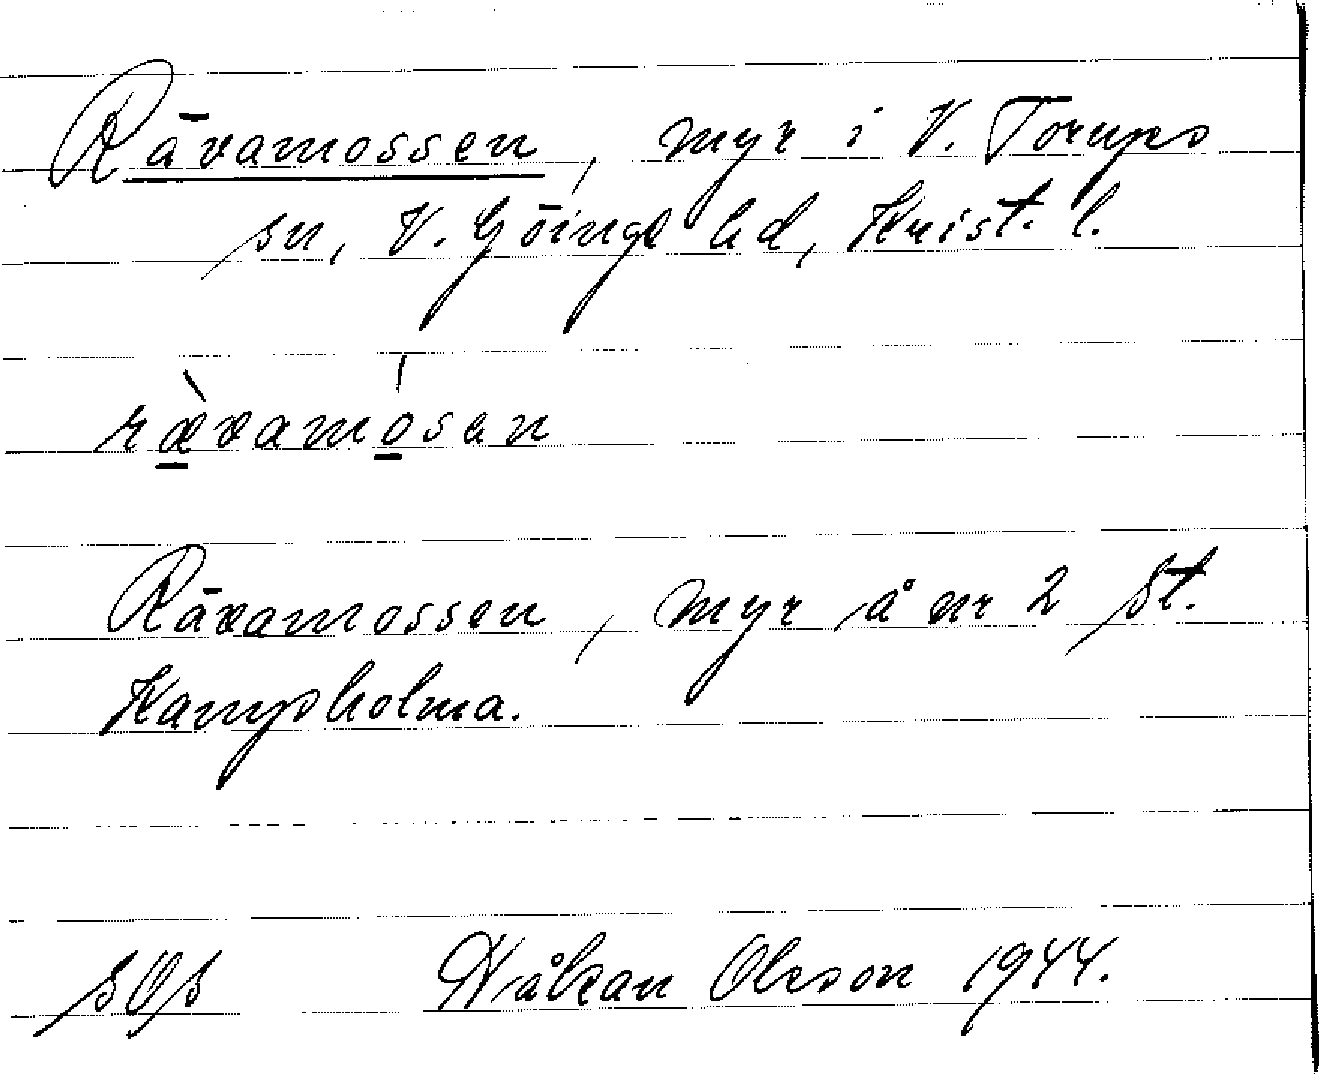 Rävamossen, myr i V. Torups
sn, V. Göinge hd, Krist. l.
ræ̀vamósan
Rävamossen, myr å nr 2 St.
Kampholma.
SOS Håkan Olsson 1944.